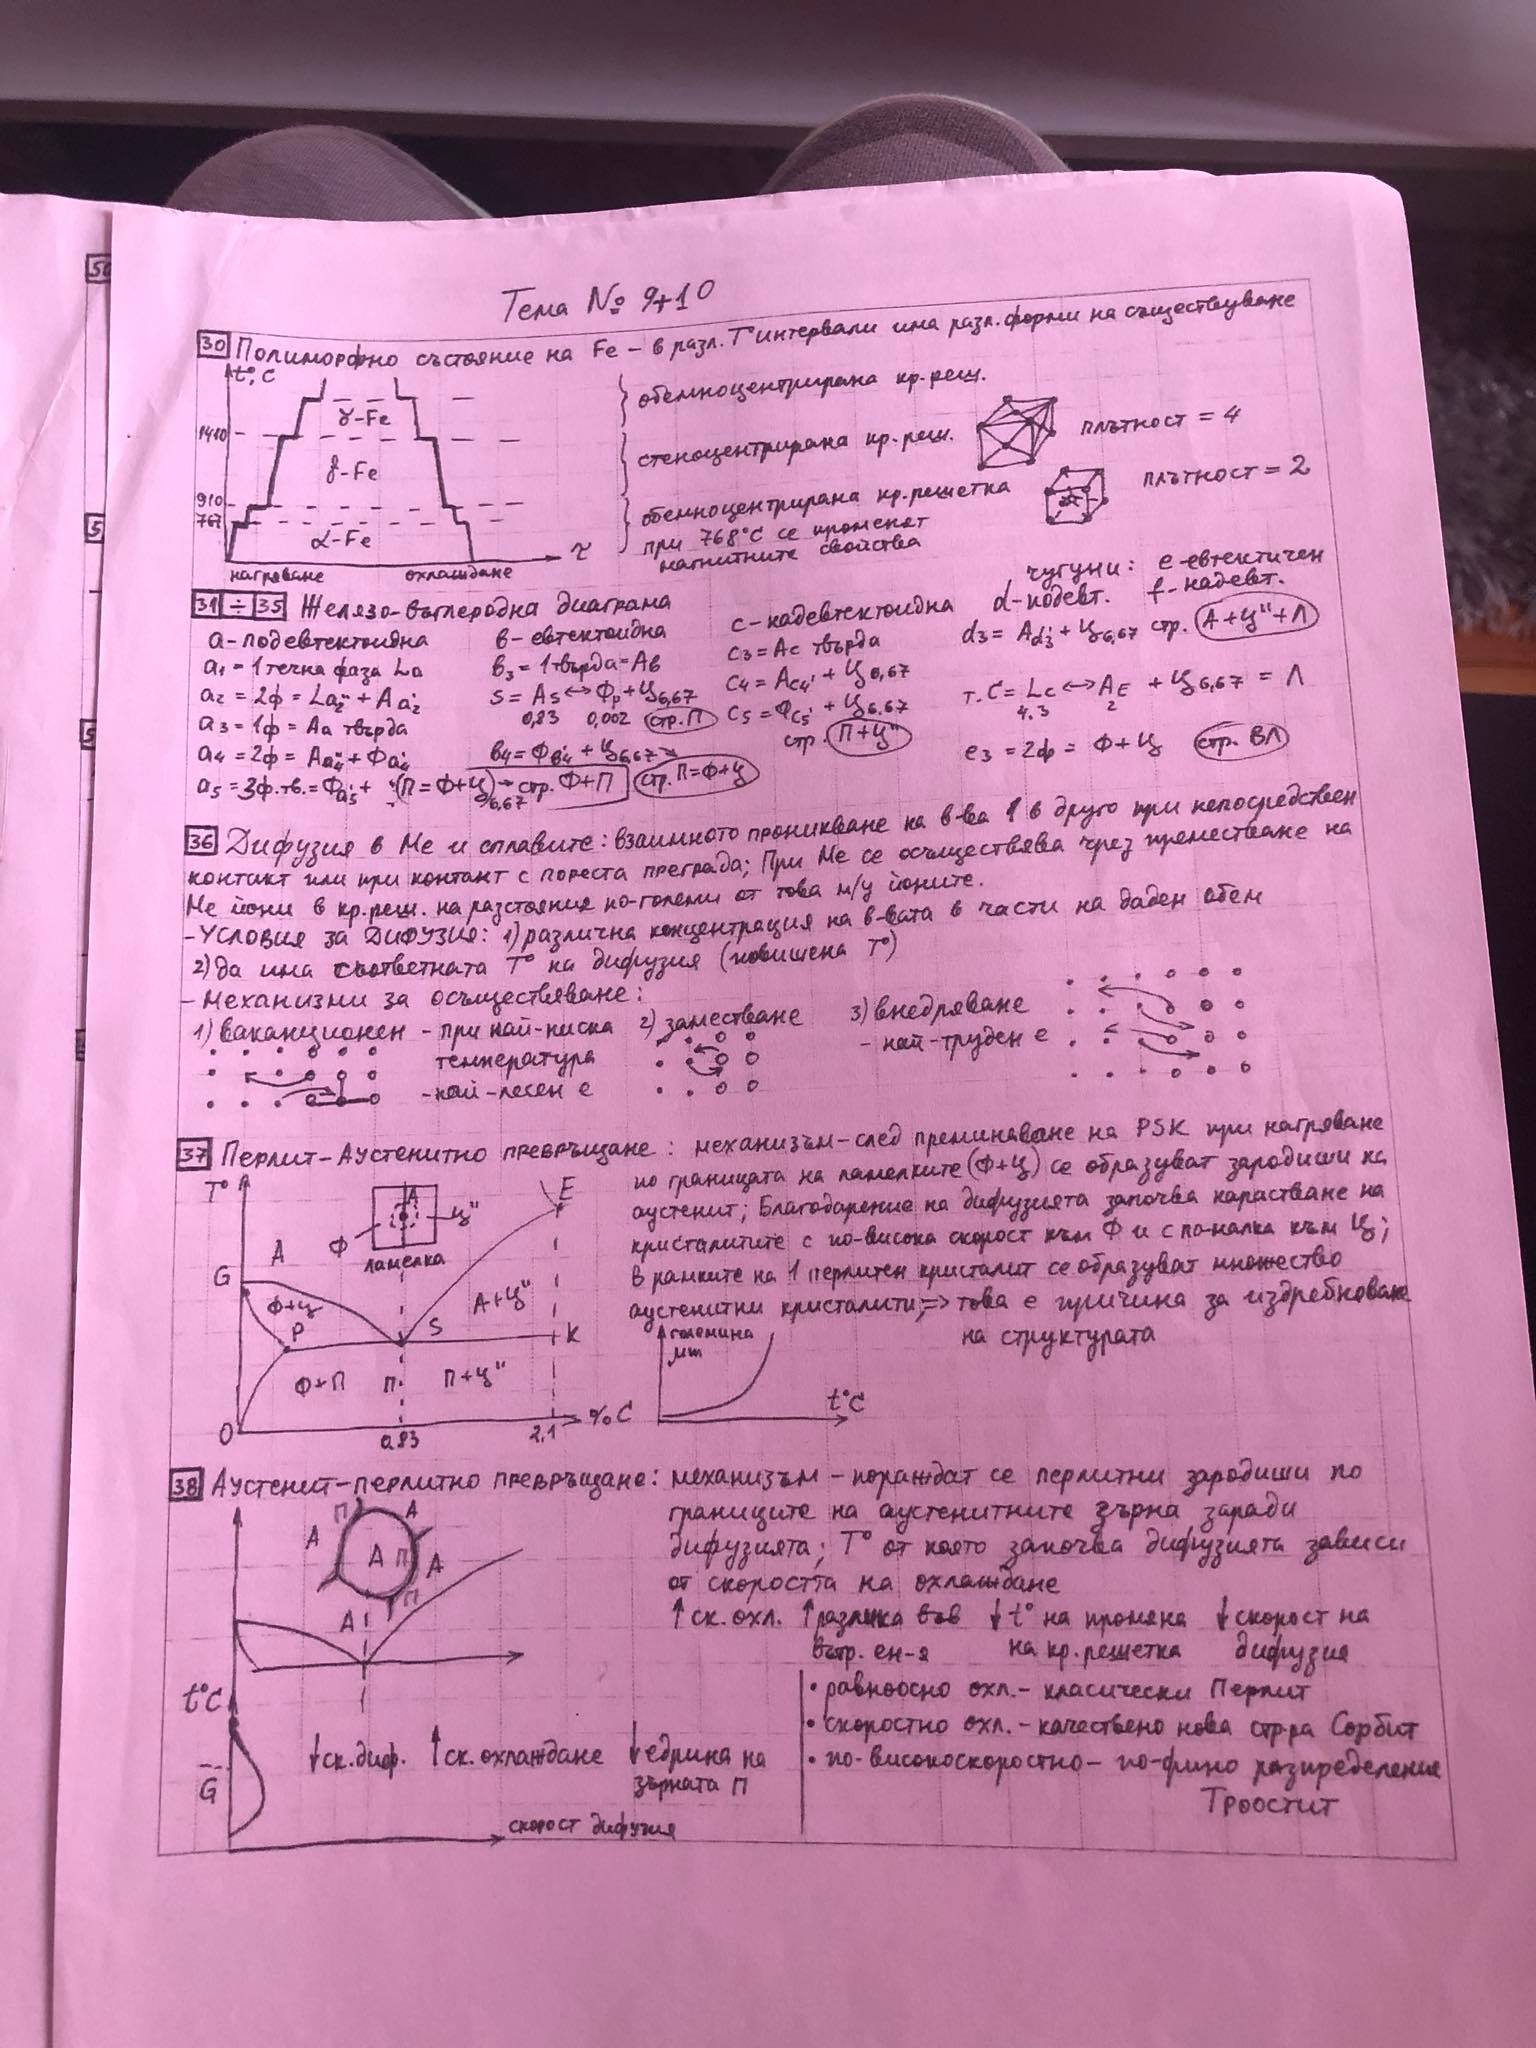 Тема № 9+10
30 Полиморфно състояние на Fe – в разл. T° интервали има разл. форми на съществуване
t°, C
γ-Fe
1410
γ-Fe
910
767
α-Fe
τ
нагряване охлаждане
обемноцентрирана кр. реш.
стеноцентрирана кр. реш. плътност = 4
обемноцентрирана кр. решетка плътност = 2
при 768°C се променят
магнитните свойства
31 ÷ 35 Желязо-въглеродна диаграма
чугуни: e-евтектичен
d-подевт. f-надевт.
a-подевтектоидна
a1 = 1 течна фаза La
a2 = 2ф = La2" + Aa2'
a3 = 1ф = Aa твърда
a4 = 2ф = Aa4" + Фa4'
a5 = 3ф.тв. = Фa5' + (П = Ф+Ц6,67) → стр. Ф+П
в- евтектоидна
в3 = 1 твърда = Aв
S = As ↔ Фp + Ц6,67
0,83 0,002 стр. П
в4 = Фв4' + Ц6,67 →
стр. П = Ф+Ц
c-надевтектоидна
c3 = Ac твърда
c4 = Ac4' + Ц6,67
c5 = Фc5' + Ц6.67
стр. П+Ц"
d3 = Ad3' + Ц6,67 стр. А+Ц"+Л
т. C = Lc ↔ AE + Ц6,67 = Л
4.3 2
e3 = 2ф = Ф+Ц стр. ВЛ
36 Дифузия в Ме и сплавите: взаимното проникване на в-ва 1 в друго при непосредствен
контакт или при контакт с пореста преграда; При Ме се осъществява чрез преместване на
Ме йони в кр. реш. на разстояния по-големи от това м/у йоните.
- Условия за Дифузия: 1) различна концентрация на в-вата в части на даден обем
2) да има съответната T° на дифузия (повишена T°)
- Механизми за осъществяване:
1) ваканционен - при най-ниска
температура
- най-лесен е
2) заместване
3) внедряване
- най-труден е
37 Перлит-Аустенитно превръщане: механизъм-след преминаване на PSK при нагряване
по границата на ламелките (Ф+Ц) се образуват зародиши на
аустенит; Благодарение на дифузията започва нарастване на
кристалитите с по-висока скорост към Ф и с по-малка към Ц;
в рамките на 1 перлитен кристалит се образуват множество
аустенитни кристалити; ⇒ това е причина за издребняване
на структурата
T°
А
Ф
Ц"
ламелка
E
А
G
Ф+Ц
P
S
А+Ц"
K
Ф+П
П
П+Ц"
0
0,83
2.1
% C
големина
t°C
38 Аустенит-перлитно превръщане: механизъм – пораждат се перлитни зародиши по
границите на аустенитните зърна заради
дифузията; T° от която започва дифузията зависи
от скоростта на охлаждане
↑ ск. охл. ↑ разлика във ↓ t° на промяна ↓ скорост на
вътр. ен-я на кр. решетка дифузия
П А
А
А П А
П
А
t°C
G
скорост дифузия
↓ ск. диф. ↑ ск. охлаждане ↓ едрина на
зърната П
• равноосно охл. - класически Перлит
• скоростно охл. - качествено нова стр-ра Сорбит
• по-високоскоростно – по-фино разпределение
Троостит